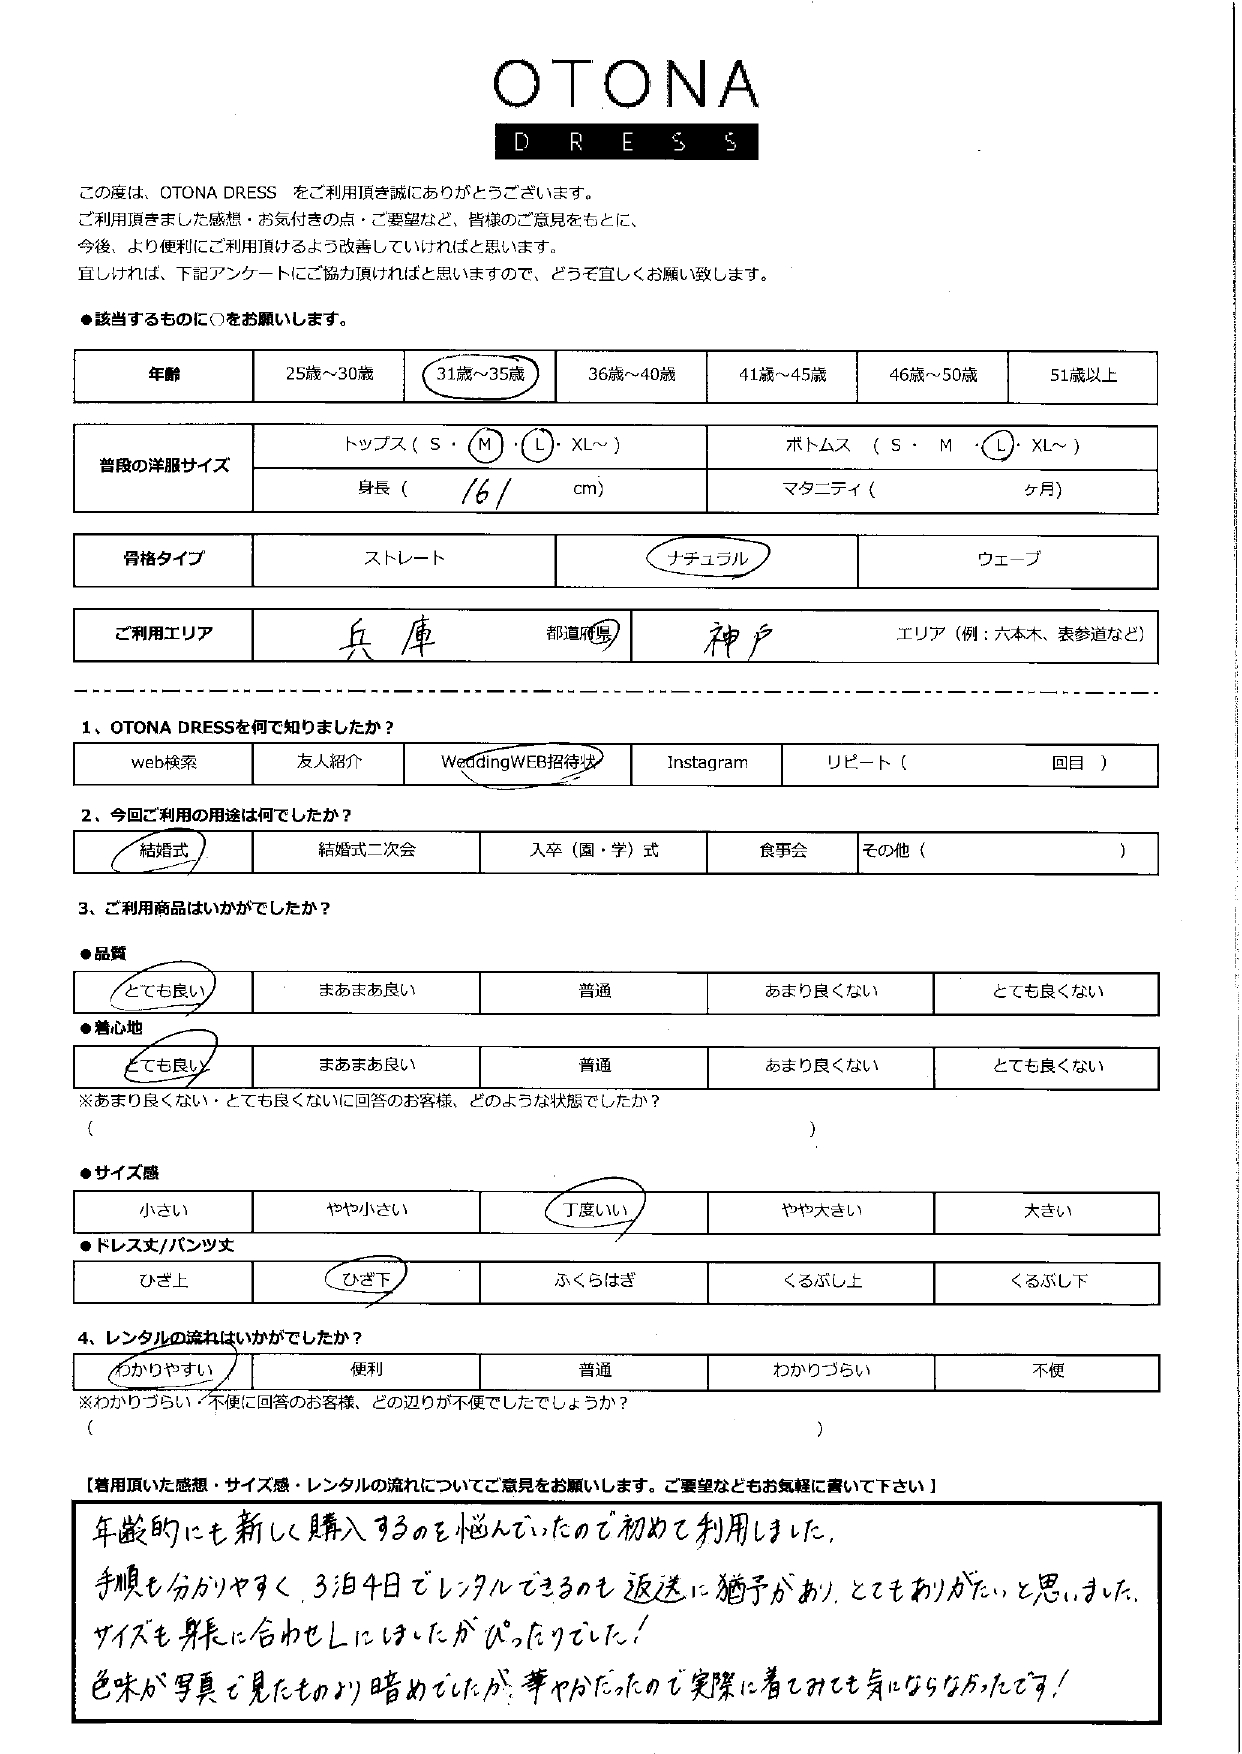 OTONA
DRESS
この度は、OTONA DRESS　をご利用頂き誠にありがとうございます。
ご利用頂きました感想・お気付きの点・ご要望など、皆様のご意見をもとに、
今後、より便利にご利用頂けるよう改善していければと思います。
宜しければ、下記アンケートにご協力頂ければと思いますので、どうぞ宜しくお願い致します。
●該当するものに○をお願いします。
年齢 25歳～30歳 31歳～35歳 36歳～40歳 41歳～45歳 46歳～50歳 51歳以上
普段の洋服サイズ トップス ( S ・ M ・ L ・ XL～ ) ボトムス ( S ・ M ・ L ・ XL～ )
身長 ( 161 cm) マタニティ ( ヶ月)
骨格タイプ ストレート ナチュラル ウェーブ
ご利用エリア 兵庫 都道府県 神戸 エリア（例：六本木、表参道など）
1、OTONA DRESSを何で知りましたか？
web検索 友人紹介 WeddingWEB招待状 Instagram リピート ( 回目 )
2、今回ご利用の用途は何でしたか？
結婚式 結婚式二次会 入卒（園・学）式 食事会 その他 ( )
3、ご利用商品はいかがでしたか？
●品質
とても良い まあまあ良い 普通 あまり良くない とても良くない
●着心地
とても良い まあまあ良い 普通 あまり良くない とても良くない
※あまり良くない・とても良くないに回答のお客様、どのような状態でしたか？
( )
●サイズ感
小さい やや小さい 丁度いい やや大きい 大きい
●ドレス丈/パンツ丈
ひざ上 ひざ下 ふくらはぎ くるぶし上 くるぶし下
4、レンタルの流れはいかがでしたか？
わかりやすい 便利 普通 わかりづらい 不便
※わかりづらい・不便に回答のお客様、どの辺りが不便でしたでしょうか？
( )
【着用頂いた感想・サイズ感・レンタルの流れについてご意見をお願いします。ご要望などもお気軽に書いて下さい 】
年齢的にも新しく購入するのを悩んでいたので初めて利用しました。
手順も分かりやすく、3泊4日でレンタルできるのも返送に猶予があり、とてもありがたいと思いました。
サイズも身長に合わせLにしましたがぴったりでした！
色味が写真で見たものより暗めでしたが、華やかだったので実際に着てみても気にならなかったです！